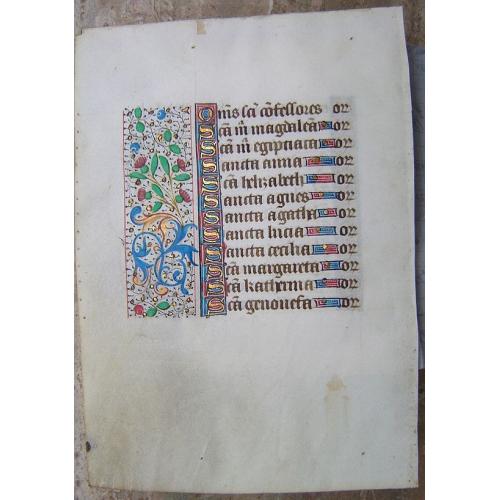 Om̄s sc̄i cōfessores or
Sc̄a m̄ magdaleā or
Sc̄a m̄ egipciaca or
Sancta anna or
Sc̄a helizabeth or
Sancta agnes or
Sancta agatha or
Sancta lucia or
Sancta cecilia or
Sc̄a margareta or
Sc̄a katherina or
Sc̄a genouefa or